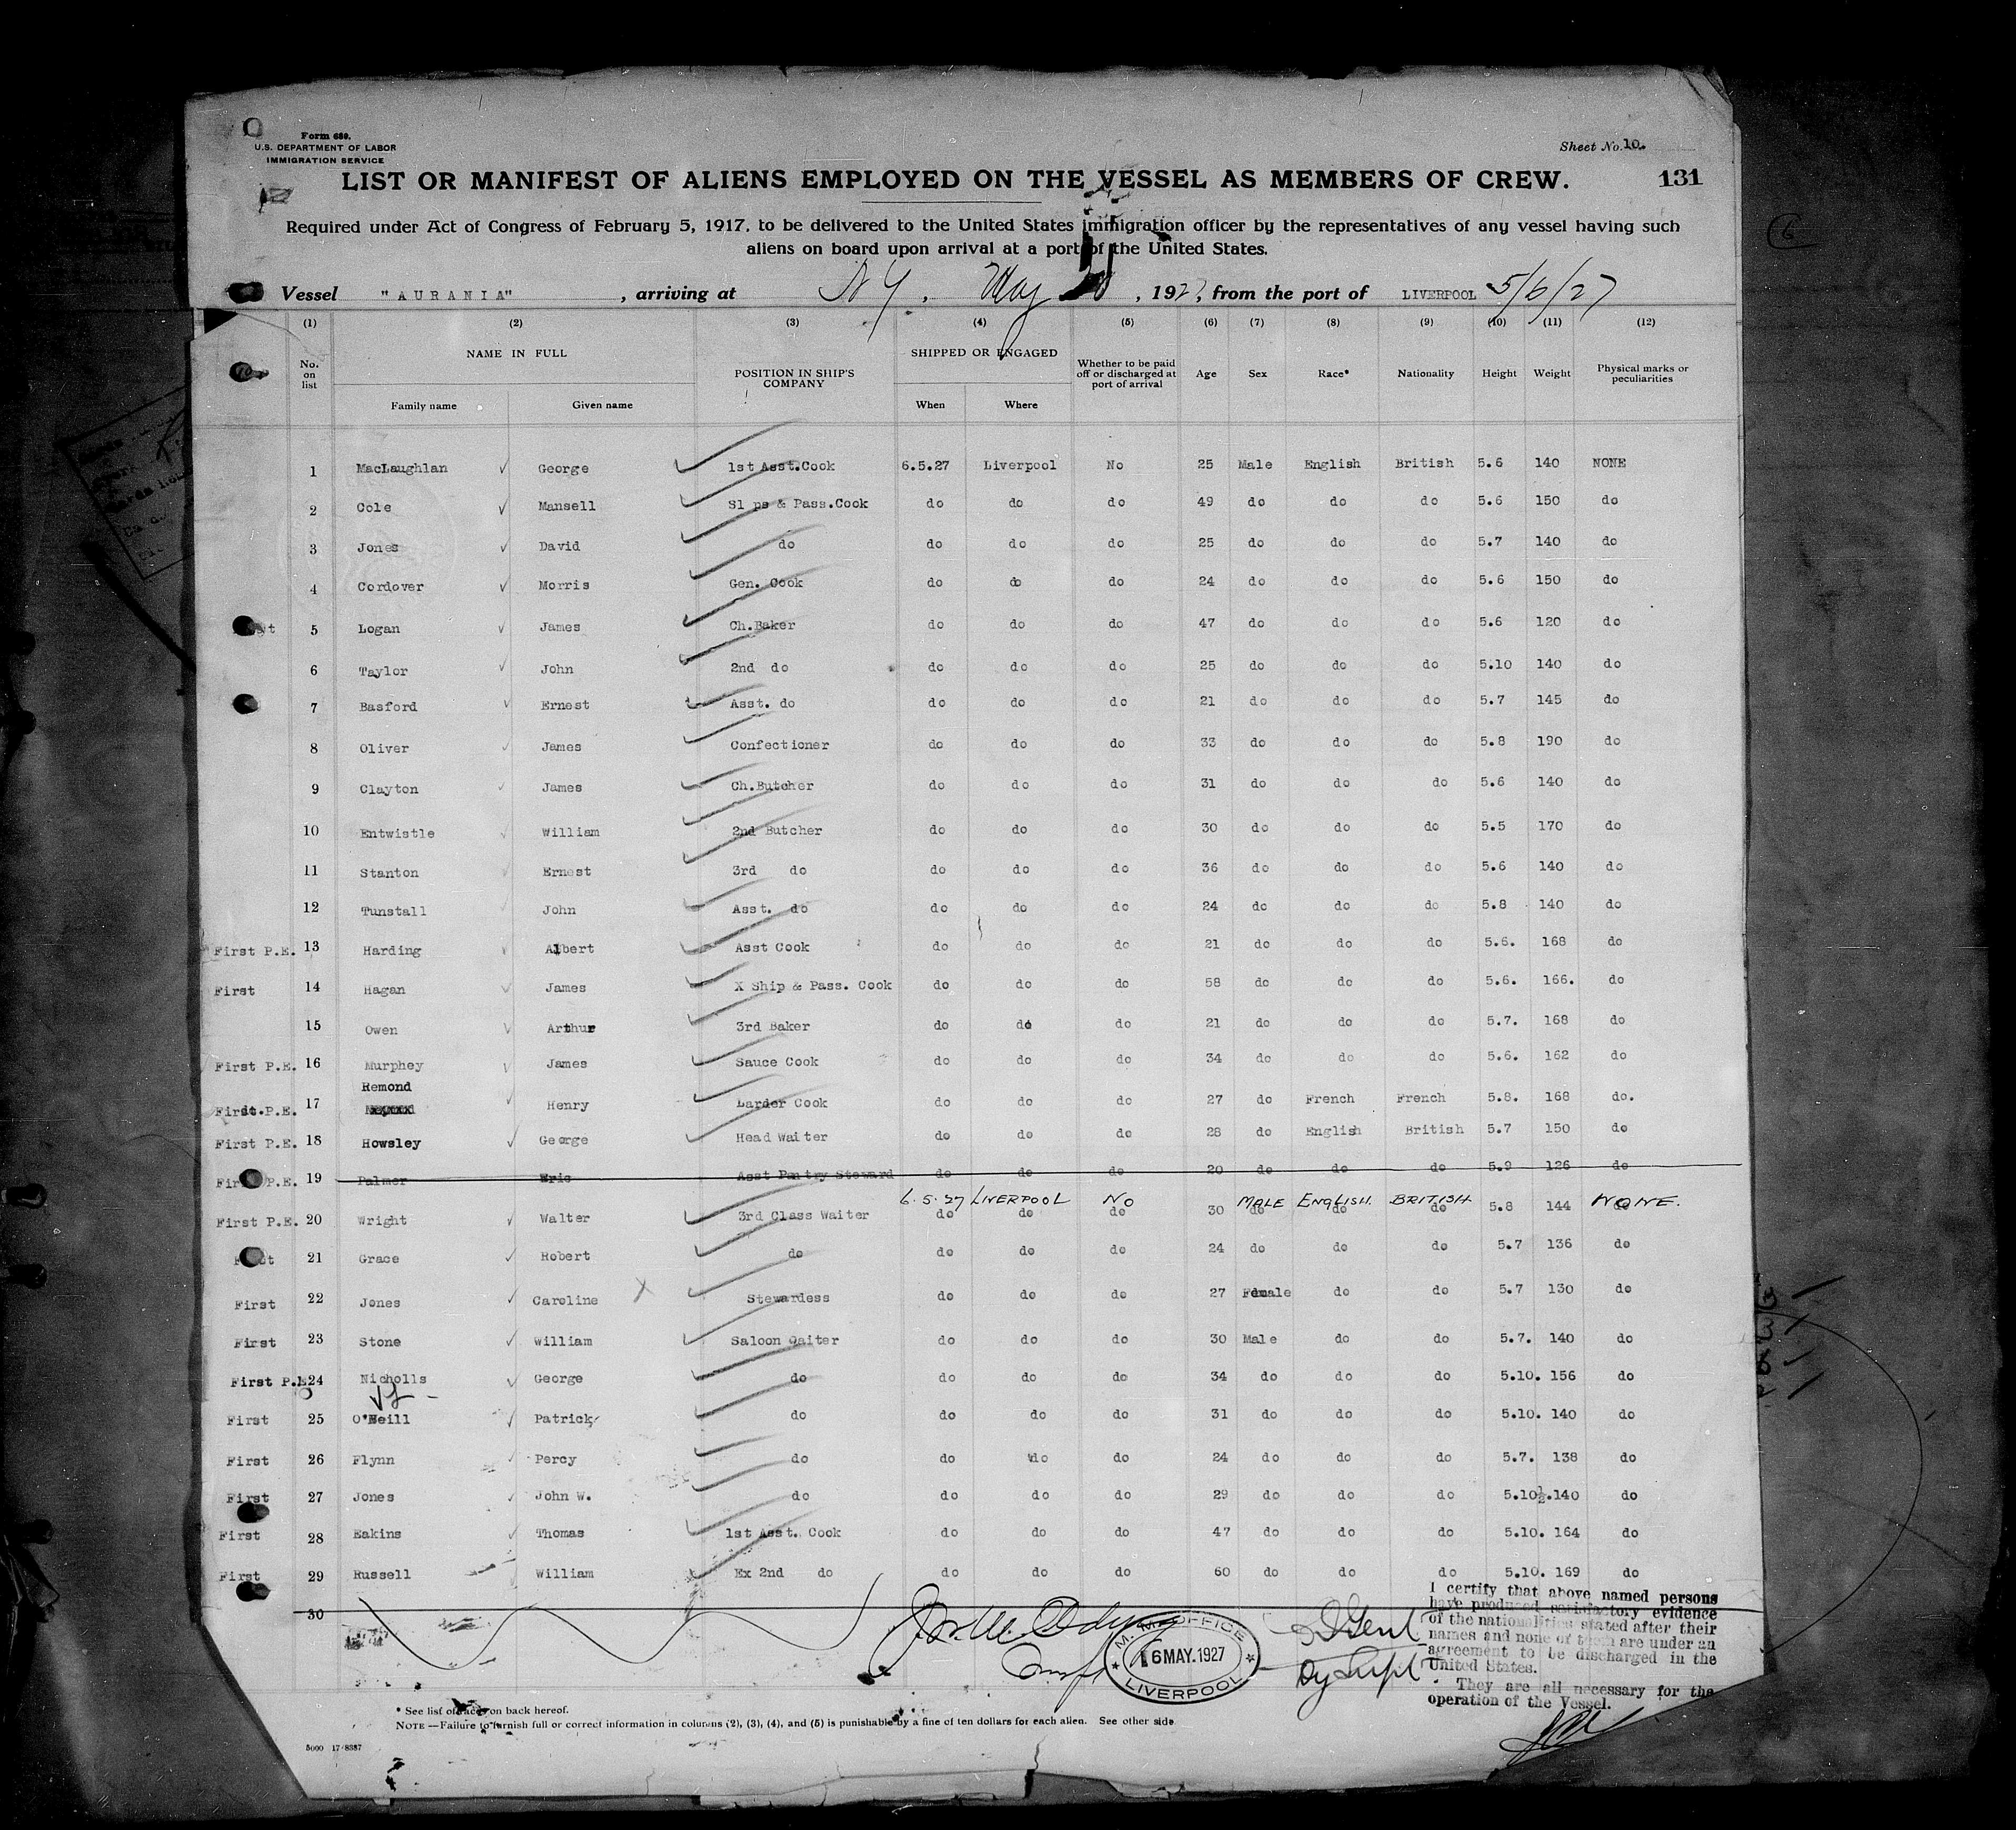 Form 689.
U.S. DEPARTMENT OF LABOR
IMMIGRATION SERVICE
Sheet No. 10.
LIST OR MANIFEST OF ALIENS EMPLOYED ON THE VESSEL AS MEMBERS OF CREW.
131
Required under Act of Congress of February 5, 1917, to be delivered to the United States immigration officer by the representatives of any vessel having such
aliens on board upon arrival at a port of the United States.
Vessel "AURANIA", arriving at N Y, May , 1927, from the port of LIVERPOOL 5/6/27
(1) (2) (3) (4) (5) (6) (7) (8) (9) (10) (11) (12)
No. on list NAME IN FULL POSITION IN SHIP'S COMPANY SHIPPED OR ENGAGED Whether to be paid off or discharged at port of arrival Age Sex Race* Nationality Height Weight Physical marks or peculiarities
Family name Given name When Where
1 MacLaughlan George 1st Asst.Cook 6.5.27 Liverpool No 25 Male English British 5.6 140 NONE
2 Cole Mansell Sl ps & Pass.Cook do do do 49 do do do 5.6 150 do
3 Jones David do do do do 25 do do do 5.7 140 do
4 Cordover Morris Gen. Cook do do do 24 do do do 5.6 150 do
5 Logan James Ch.Baker do do do 47 do do do 5.6 120 do
6 Taylor John 2nd do do do do 25 do do do 5.10 140 do
7 Basford Ernest Asst. do do do do 21 do do do 5.7 145 do
8 Oliver James Confectioner do do do 33 do do do 5.8 190 do
9 Clayton James Ch.Butcher do do do 31 do do do 5.6 140 do
10 Entwistle William 2nd Butcher do do do 30 do do do 5.5 170 do
11 Stanton Ernest 3rd do do do do 36 do do do 5.6 140 do
12 Tunstall John Asst. do do do do 24 do do do 5.8 140 do
First P.E. 13 Harding Albert Asst Cook do do do 21 do do do 5.6. 168 do
First 14 Hagan James X Ship & Pass. Cook do do do 58 do do do 5.6. 166. do
15 Owen Arthur 3rd Baker do do do 21 do do do 5.7. 168 do
First P.E. 16 Murphey James Sauce Cook do do do 34 do do do 5.6. 162 do
Remond
First.P.E. 17 Henry Larder Cook do do do 27 do French French 5.8. 168 do.
First P.E. 18 Howsley George Head Waiter do do do 28 do English British 5.7 150 do
First P.E. 19 Palmer Eric Asst Pantry Steward do do do 20 do do do 5.9 126 do
6.5.27 LIVERPOOL NO MALE ENGLISH. BRITISH NONE.
First P.E. 20 Wright Walter 3rd Class Waiter do do do 30 do do do 5.8 144 do
21 Grace Robert do do do do 24 do do do 5.7 136 do
First 22 Jones Caroline X Stewardess do do do 27 Female do do 5.7 130 do
First 23 Stone William Saloon Oaiter do do do 30 Male do do 5.7. 140 do
First P.E. 24 Nicholls George do do do do 34 do do do 5.10. 156 do
First 25 O'Neill Patrick do do do do 31 do do do 5.10. 140 do
First 26 Flynn Percy do do do do 24 do do do 5.7. 138 do
First 27 Jones John W. do do do do 29 do do do 5.10½.140 do
First 28 Eakins Thomas 1st Asst. Cook do do do 47 do do do 5.10. 164 do
First 29 Russell William Ex 2nd do do do do 60 do do do 5.10. 169 do
30
M. M. OFFICE
16 MAY.1927
LIVERPOOL
I certify that above named persons
have produced satisfactory evidence
of the nationalities stated after their
names and none of them are under an
agreement to be discharged in the
United States.
They are all necessary for the
operation of the Vessel.
* See list of races on back hereof.
NOTE —Failure to furnish full or correct information in columns (2), (3), (4), and (5) is punishable by a fine of ten dollars for each alien. See other side